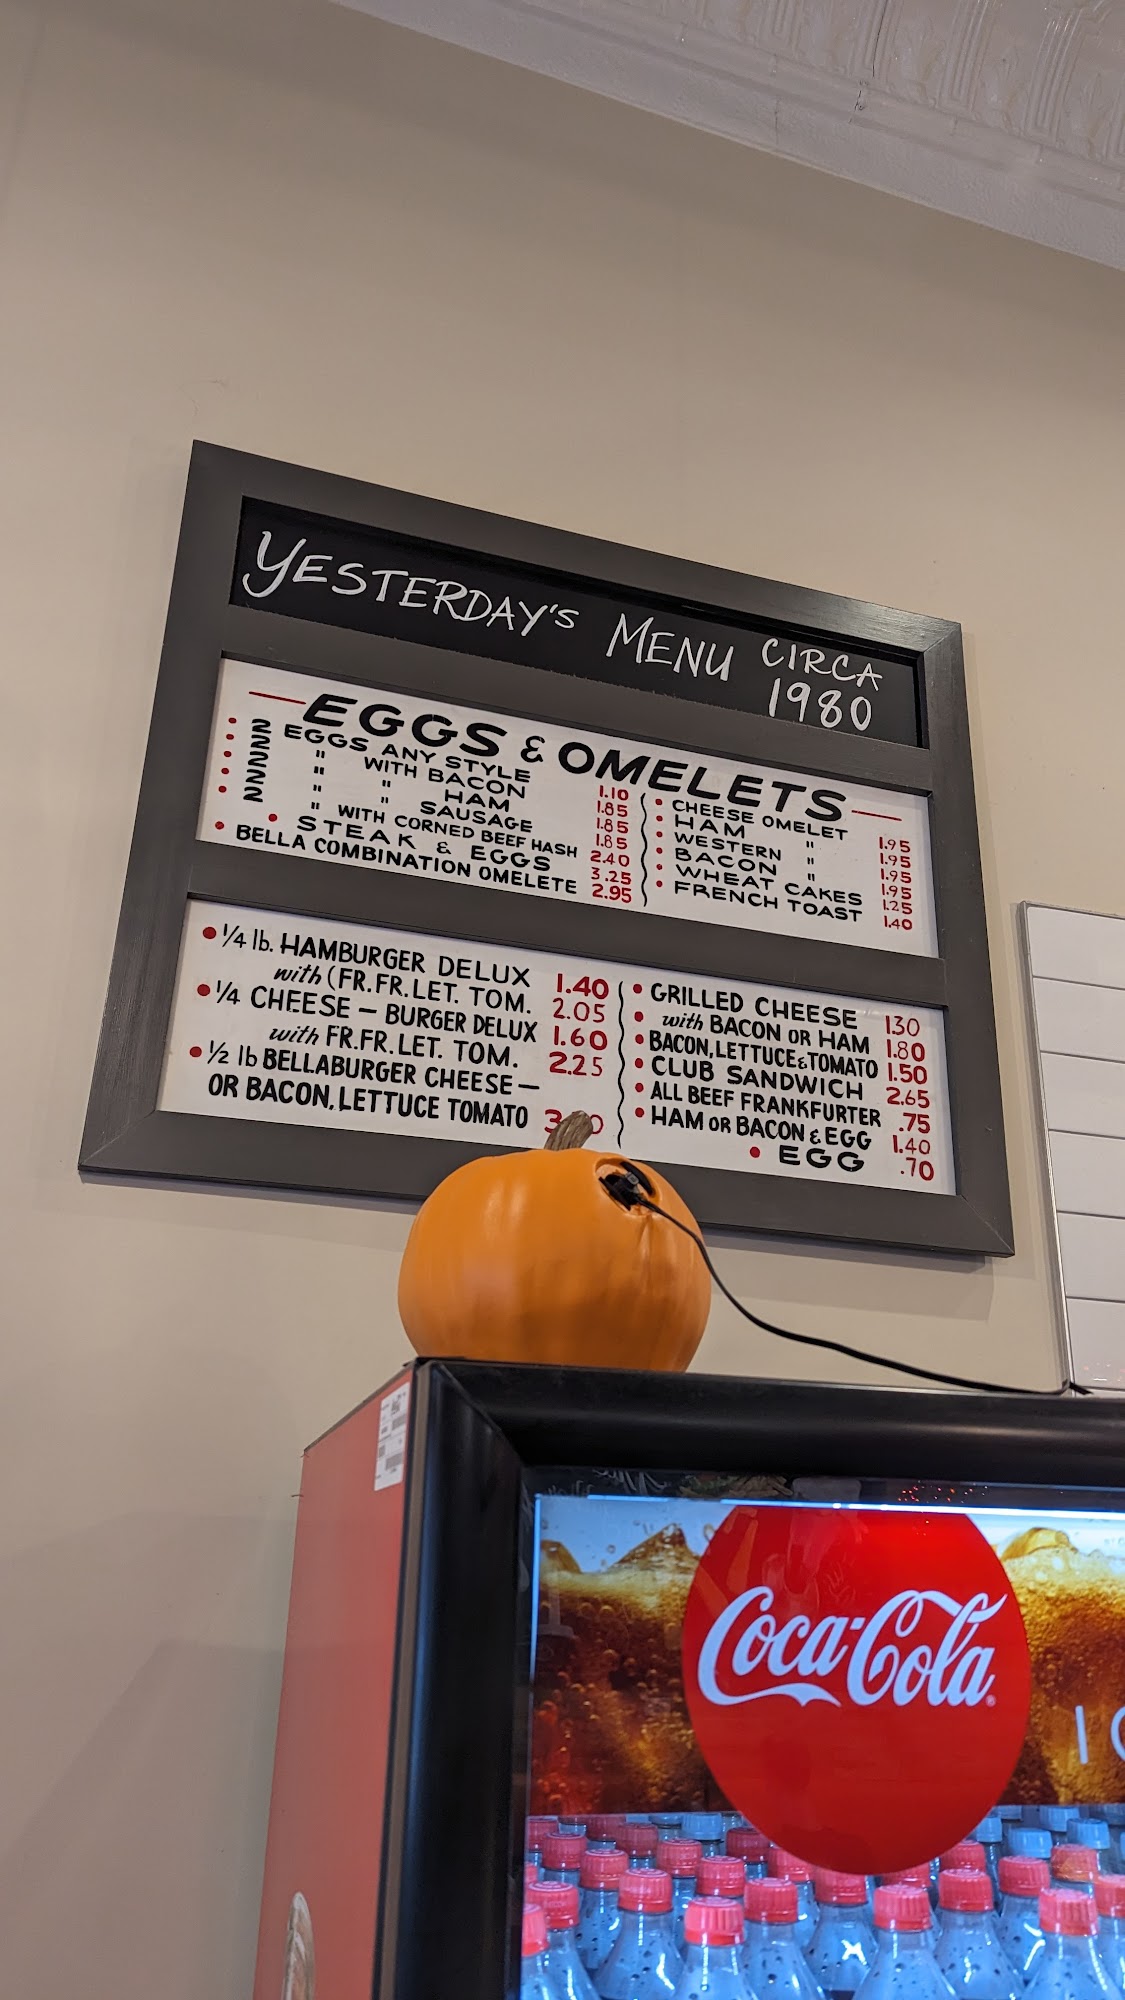 YESTERDAY'S MENU CIRCA 1980
EGGS & OMELETS
• 2 EGGS ANY STYLE 1.10
• 2 " WITH BACON 1.85
• 2 " " HAM 1.85
• 2 " " SAUSAGE 1.85
• 2 " WITH CORNED BEEF HASH 2.40
• STEAK & EGGS 3.25
• BELLA COMBINATION OMELETE 2.95
• CHEESE OMELET 1.95
• HAM " 1.95
• WESTERN " 1.95
• BACON " 1.95
• WHEAT CAKES 1.25
• FRENCH TOAST 1.40
• 1/4 lb. HAMBURGER DELUX 1.40
with (FR.FR.LET. TOM. 2.05
• 1/4 CHEESE – BURGER DELUX 1.60
with FR.FR.LET. TOM. 2.25
• 1/2 lb BELLABURGER CHEESE –
OR BACON, LETTUCE TOMATO
• GRILLED CHEESE 1.30
• with BACON OR HAM 1.80
• BACON, LETTUCE & TOMATO 1.50
• CLUB SANDWICH 2.65
• ALL BEEF FRANKFURTER .75
• HAM OR BACON & EGG 1.40
• EGG .70
Coca-Cola